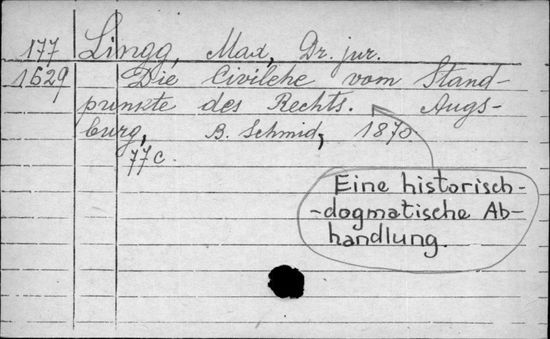 177 Lingg, Max, Dr. jur.
1629 Die Civilehe vom Stand-
punkte des Rechts. Augs-
burg, B. Schmid, 1870
77 c.
Eine historisch-
-dogmatische Ab-
handlung.